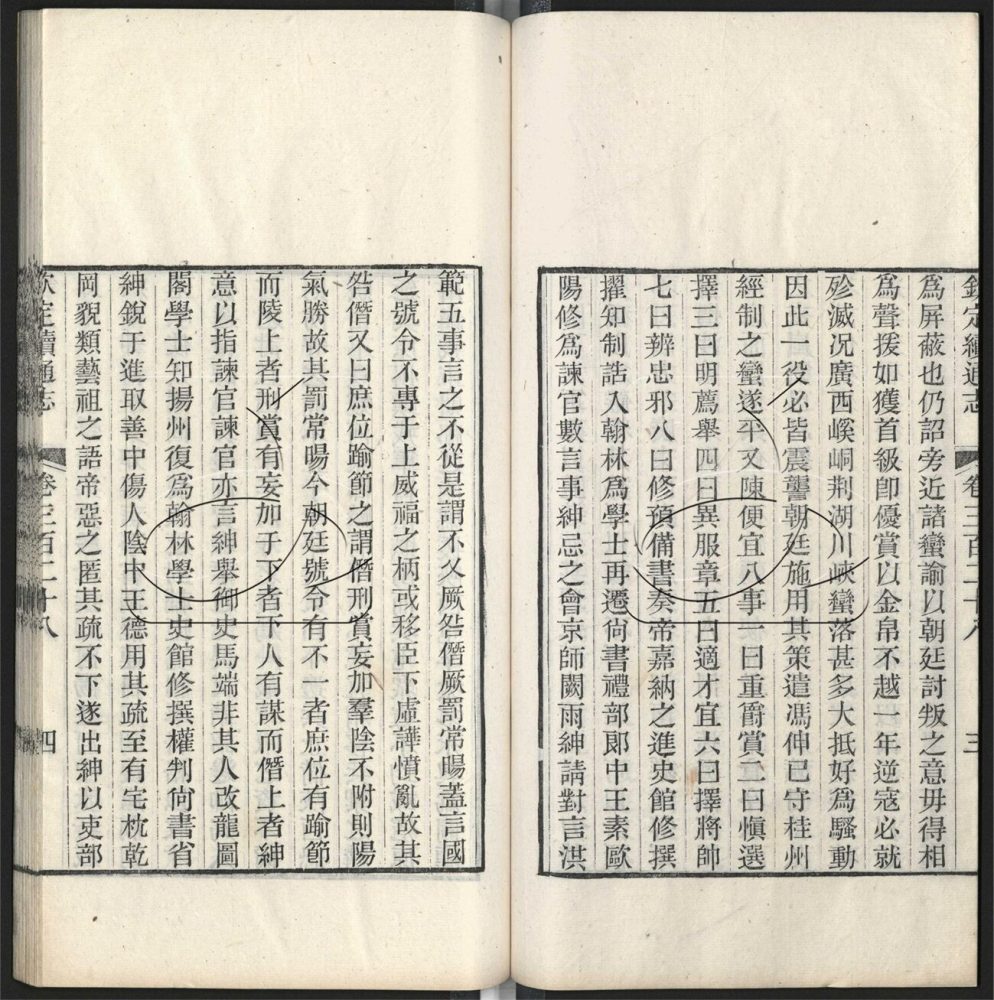 欽定續通志 卷三百二十八 三
爲屏蔽也仍詔旁近諸蠻諭以朝廷討叛之意毋得相
爲聲援如獲首級卽優賞以金帛不越一年逆寇必就
殄滅况廣西嵠峒荆湖川峽蠻落甚多大抵好爲騷動
因此一役必皆震讋朝廷施用其策遣馮伸已守桂州
經制之蠻遂平又陳便宜八事一曰重爵賞二曰愼選
擇三曰明薦舉四曰異服章五曰適才宜六曰擇將帥
七曰辨忠邪八曰修預備書奏帝嘉納之進史館修撰
擢知制誥入翰林爲學士再遷尙書禮部郞中王素歐
陽修爲諫官數言事紳忌之會京師闕雨紳請對言洪
範五事言之不從是謂不乂厥咎僭厥罰常暘蓋言國
之號令不專于上威福之柄或移臣下虛譁憤亂故其
咎僭又曰庶位踰節之謂僭刑賞妄加羣陰不附則陽
氣勝故其罰常暘今朝廷號令有不一者庶位有踰節
而陵上者刑賞有妄加于下者下人有謀而僭上者紳
意以指諫官諫官亦言紳舉御史馬端非其人改龍圖
閣學士知揚州復爲翰林學士史館修撰權判尙書省
紳銳于進取善中傷人陰中王德用其疏至有宅枕乾
岡貌類藝祖之語帝惡之匿其疏不下遂出紳以吏部
欽定續通志 卷三百二十八 四